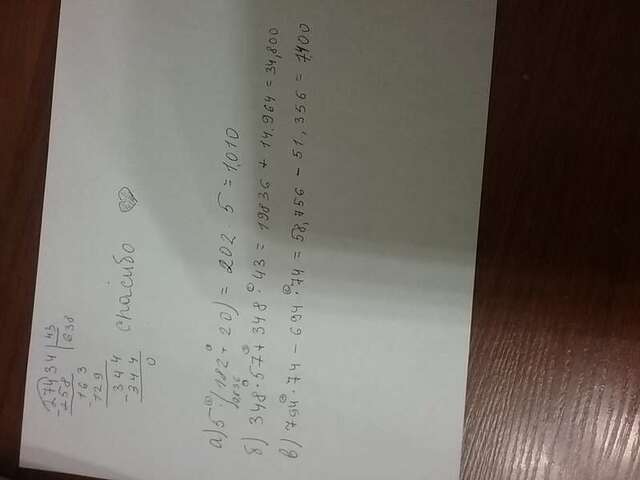 27434 | 43
-258 | 638
163
-129
344
-344
0
спасибо
а) 5 · (182 + 20) = 202 · 5 = 1,010
19836
б) 348 · 57 + 348 · 43 = 19836 + 14.964 = 34,800
в) 794 · 74 - 694 · 74 = 58,756 - 51,356 = 7,400